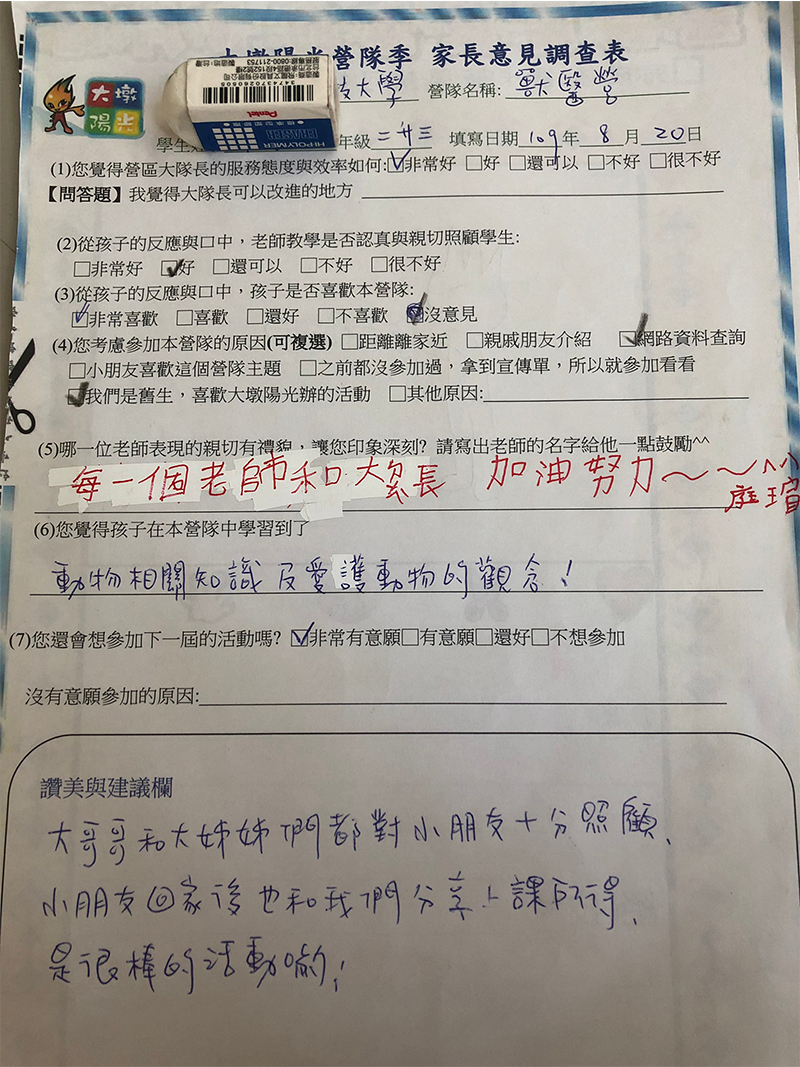 大墩陽光營隊季 家長意見調查表
大墩
陽光
技大學 營隊名稱: 獸醫營
製造商:飛龍文具股份有限公司
台北市承德路4段152號2樓
服務專線:0800-211753
製造地:台灣
3474370260505
Pentel
HI-POLYMER
ERASER
年級 二升三 填寫日期 109年 8 月 20日
(1)您覺得營區大隊長的服務態度與效率如何:☑非常好 □好 □還可以 □不好 □很不好
【問答題】我覺得大隊長可以改進的地方
(2)從孩子的反應與口中,老師教學是否認真與親切照顧學生:
□非常好 ☑好 □還可以 □不好 □很不好
(3)從孩子的反應與口中,孩子是否喜歡本營隊:
☑非常喜歡 □喜歡 □還好 □不喜歡 ☑沒意見
(4)您考慮參加本營隊的原因(可複選) □距離離家近 □親戚朋友介紹 ☑網路資料查詢
□小朋友喜歡這個營隊主題 □之前都沒參加過,拿到宣傳單,所以就參加看看
☑我們是舊生,喜歡大墩陽光辦的活動 □其他原因:
(5)哪一位老師表現的親切有禮貌,讓您印象深刻? 請寫出老師的名字給他一點鼓勵^^
每一個老師和大隊長 加油努力~~^^
庭瑄
(6)您覺得孩子在本營隊中學習到了
動物相關知識及愛護動物的觀念!
(7)您還會想參加下一屆的活動嗎? ☑非常有意願□有意願□還好□不想參加
沒有意願參加的原因:
讚美與建議欄
大哥哥和大姊姊們都對小朋友十分照顧、
小朋友回家後也和我們分享上課所得、
是很棒的活動喲!